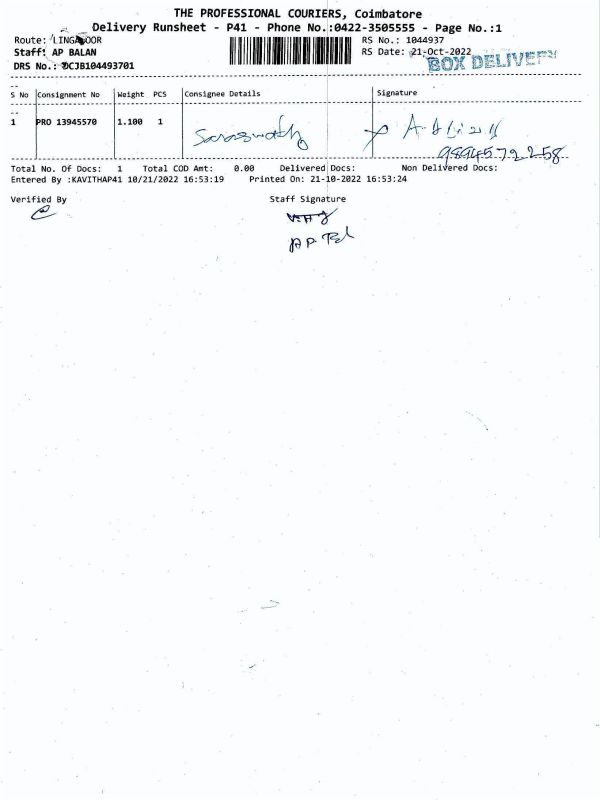 THE PROFESSIONAL COURIERS, Coimbatore
Delivery Runsheet - P41 - Phone No.:0422-3505555 - Page No.:1
Route: RS No.: 1044937
Staff: AP BALAN RS Date: 21-Oct-2022
DRS No.: DCJB104493701 BOX DELIVERY
S No Consignment No Weight PCS Consignee Details Signature
1 PRO 13945570 1.100 1 Saraswathy
9894572258
Total No. Of Docs: 1 Total COD Amt: 0.00 Delivered Docs: Non Delivered Docs:
Entered By :KAVITHAP41 10/21/2022 16:53:19 Printed On: 21-10-2022 16:53:24
Verified By Staff Signature